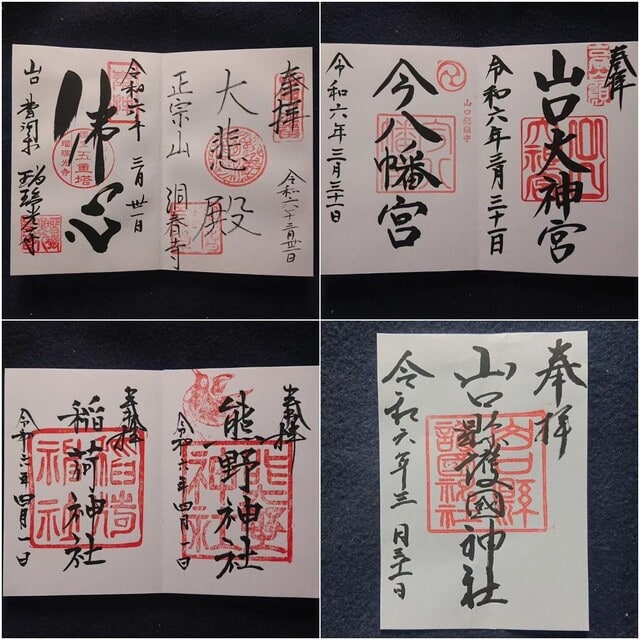 奉拝
大悲殿
正宗山 洞春寺
令和六年三月卅一日
令和六年 三月 卅一日
佛心
五重塔
瑠璃光寺
山口 香河山 瑠璃光寺
奉拝
山口大神宮
令和六年三月三十一日
今八幡宮
山口総鎮守
令和六年三月三十一日
奉拝
熊野神社
令和六年四月一日
奉拝
稲荷神社
令和六年四月一日
奉拝
山口縣護國神社
令和六年三月三十一日